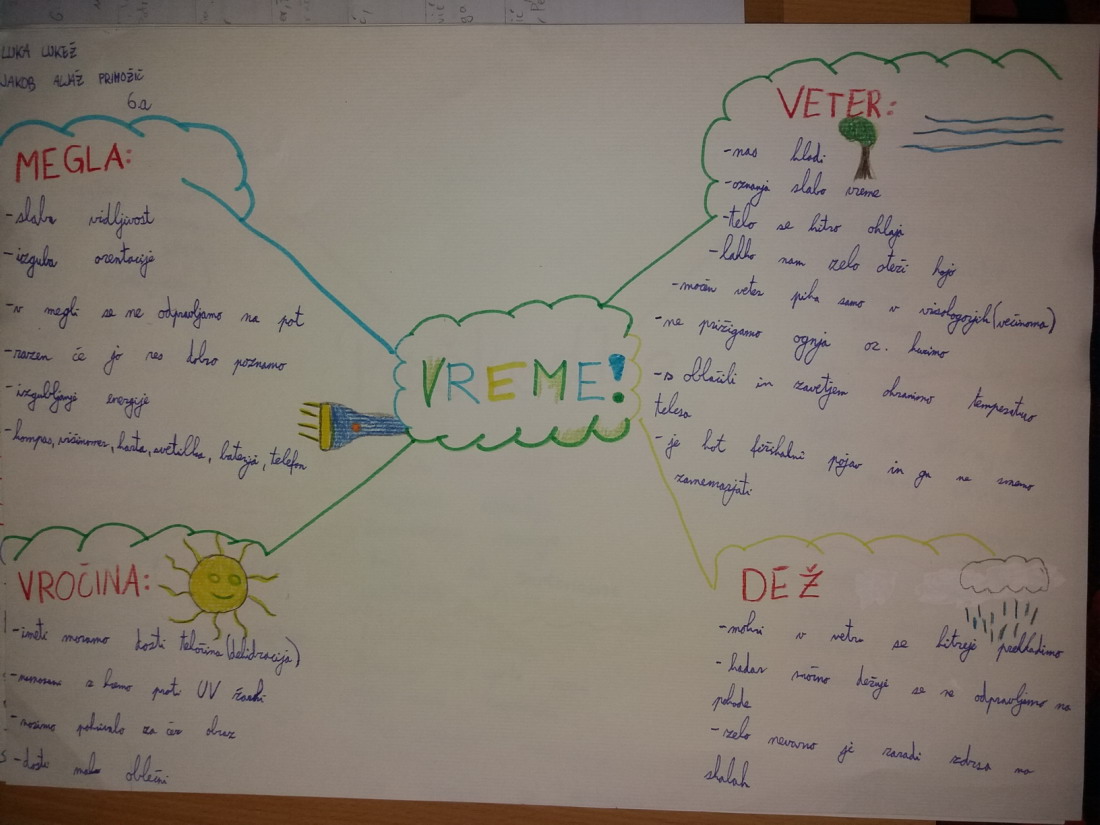 LUKA LUKEŽ
JAKOB ALJAŽ PRIMOŽIČ
6a
MEGLA:
-slaba vidljivost
-izguba orentacije
-v megli se ne odpravljamo na pot
-razen če jo res dobro poznamo
-izgubljanje energije
-kompas, višinomer, karta, svetilka, baterija, telefon
VREME!
VETER:
-nas hladi
-oznanja slabo vreme
-telo se hitro ohlaja
-lahko nam zelo oteži hojo
-močen veter piha samo v visokogorjih (večinoma)
-ne prižigamo ognja oz. kurimo
-z oblačili in zavetjem ohranimo temperaturo
telesa
-je kot pojav in ga ne smemo
zanemarjati
VROČINA:
-imeti moramo dosti tekočine (dehidracija)
z kremo proti UV žarki
-nosimo pokrivalo za čez obraz
-dosti malo oblečni
DEŽ
-mokri v vetru se hitreje prehladimo
-kadar močno dežuje se ne odpravljamo na
pohode
-zelo nevarno je zaradi zdrsa na
skalah